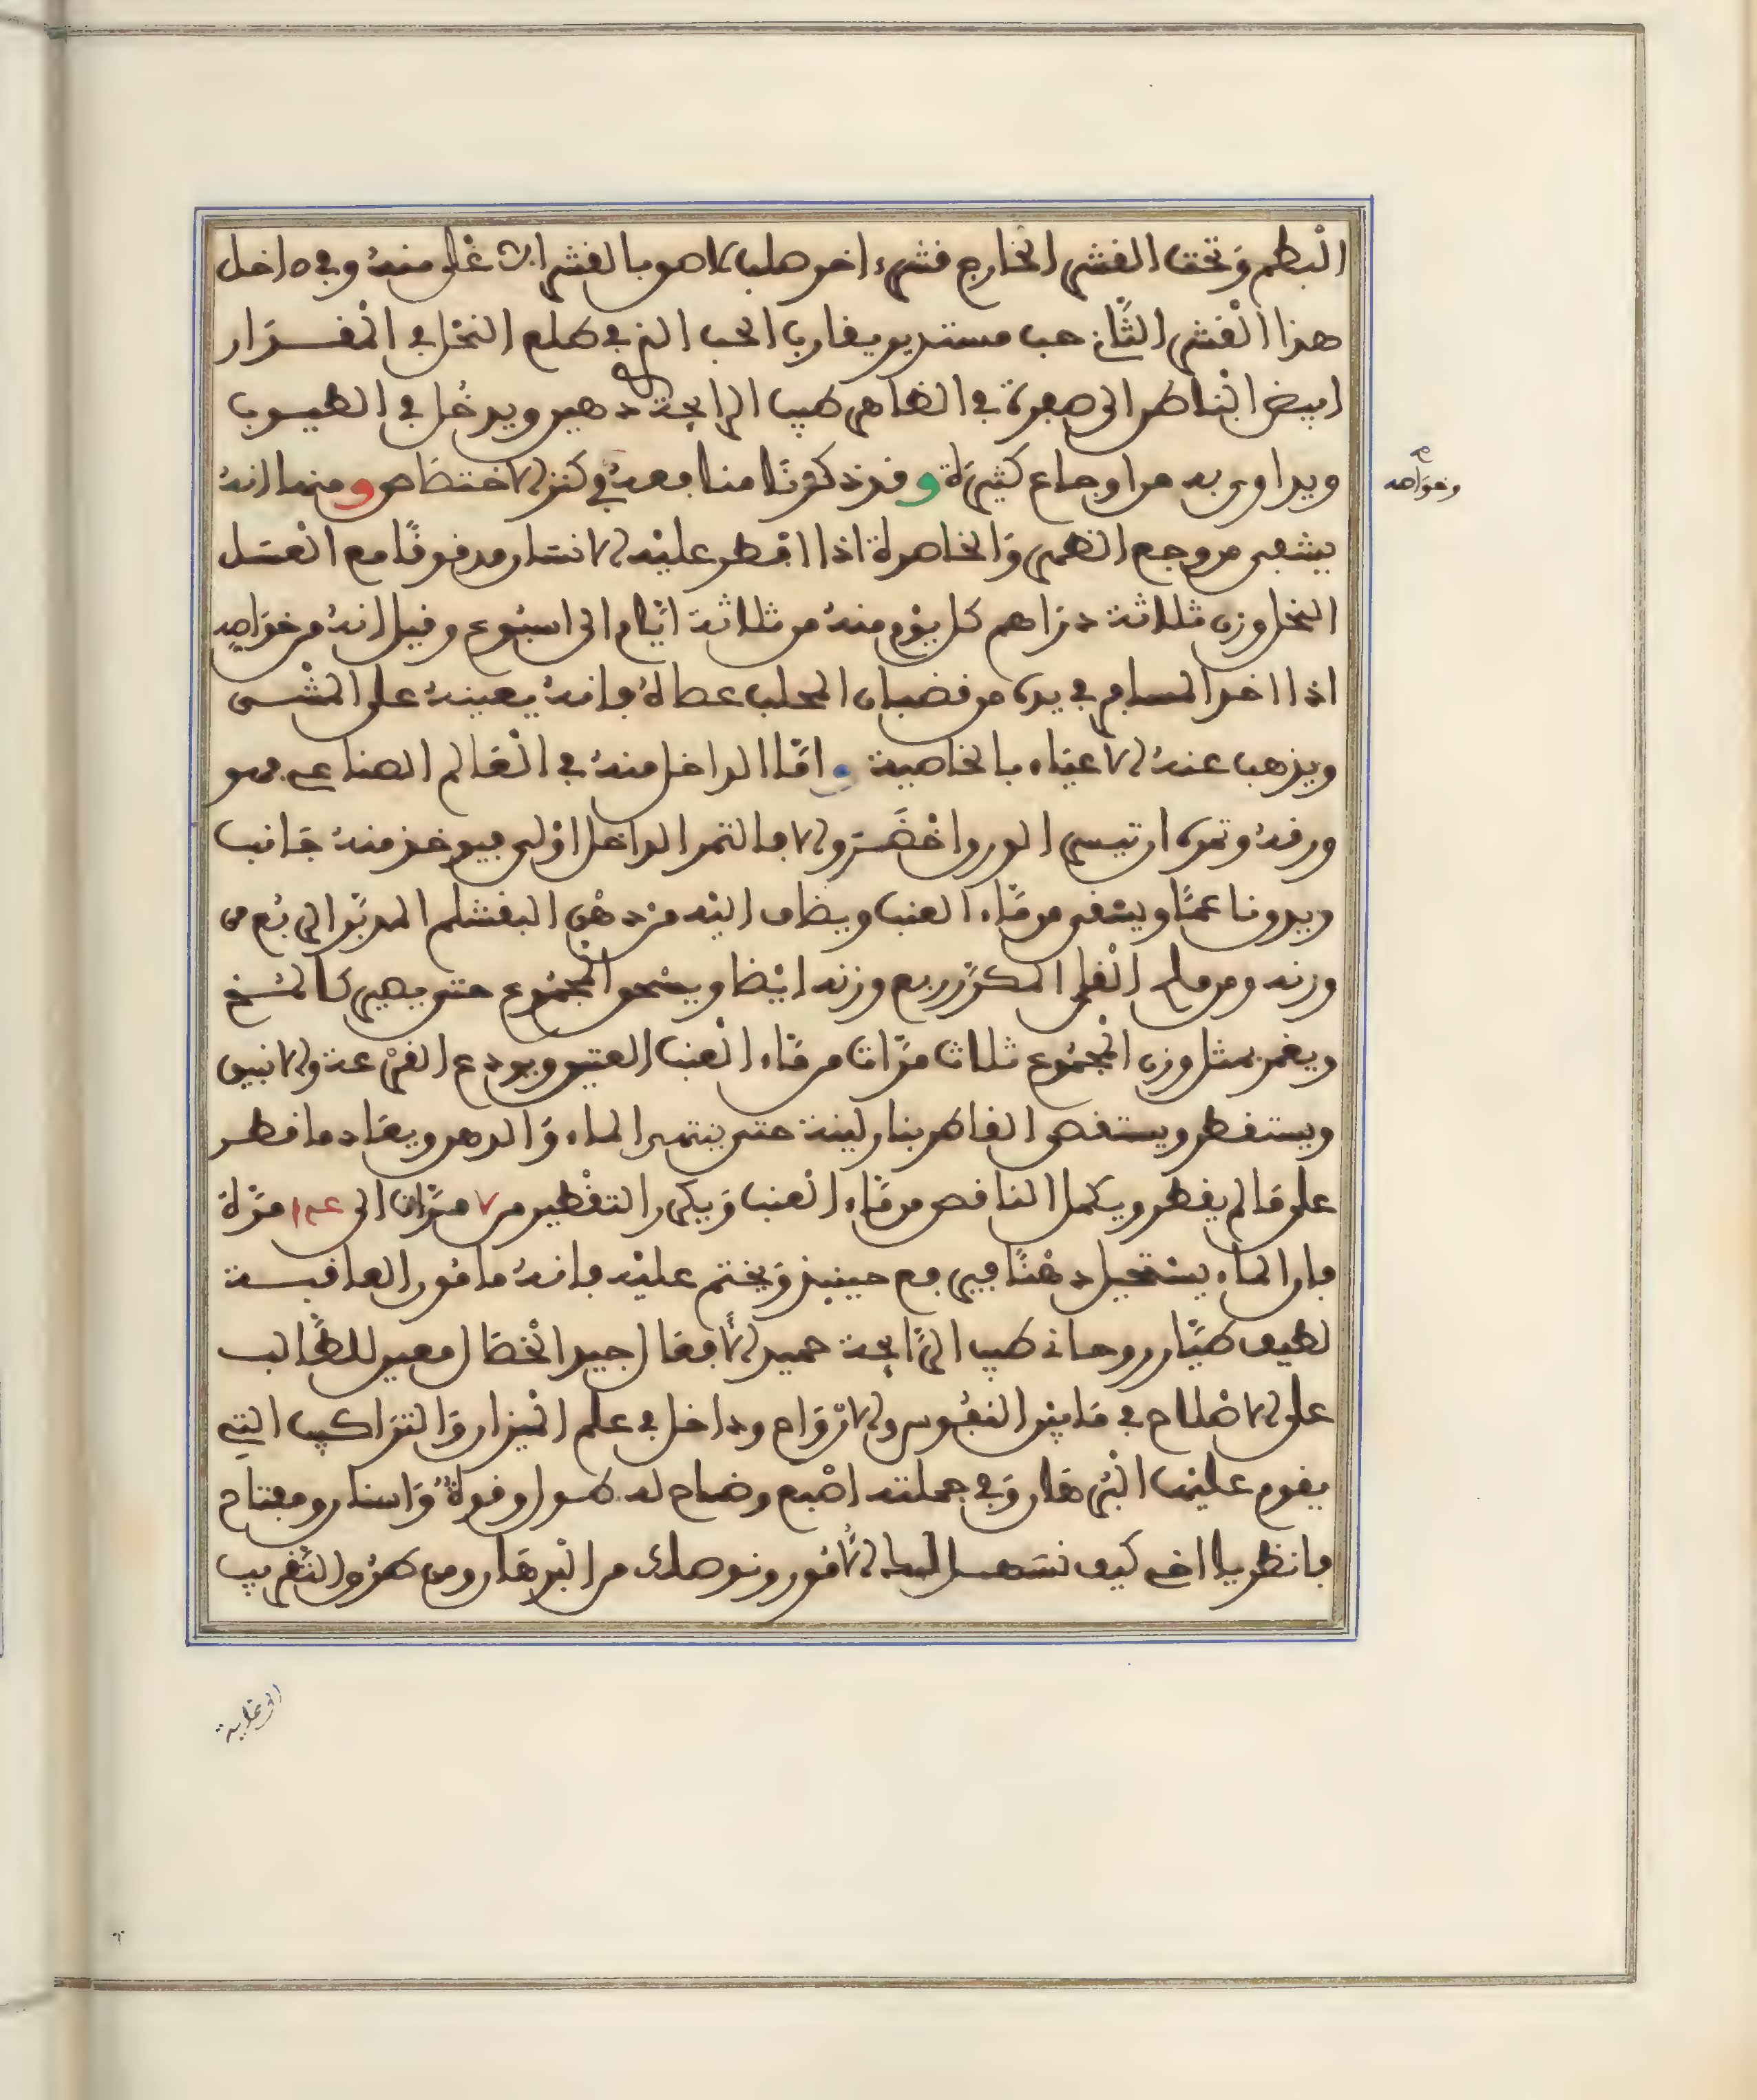 البطم وتحت القشر الخارج قشر اخر صلب لاصق بالقشر الاعلى منه وفي داخل
هذا القشر الثاني حب مستدير يقارب الحب الذي في طلع النخل في المقدار
ابيض الباطن الى صفرة في الظاهر طيب الرايحة دهين ويدخل في الطيوب
ويداوى به من اوجاع كثيرة وقد ذكرنا منافعه في كنز الاختصاص ومنها انه
يشفي من وجع الظهر والخاصرة اذا افطر عليه الانسان مدقوقا مع العسل
النحل وزن ثلاثة دراهم كل يوم منه من ثلاثة ايام الى اسبوع وقيل انه من خواصه
وخواصه
اذا اخذ المسافر في يده من قضبان المحلب عصاة فانه يعينه على المشي
ويذهب عنه الاعياء بالخاصية واما الداخل منه في العالم الصناعي فهو
ورقه وثمره ان تيسر الورد اخضر والا فالثمر الداخل اولى فيوخذ منه جانب
ويدق ناعما ويسقى من ماء العنب ويضاف اليه من دهن المدبر الى ربع من
وزنه ومن ملح القلي المكرر ربع وزنه ايضا ويسحق المجموع حتى يصير كالمخ
ويغمر بمثل وزن المجموع ثلاث مرات من ماء العنب العتيق ويودع القرعة والانبيق
ويستقطر ويستقصى القاطر بنار لينة حتى يتميز الماء والدهن ويعاد ما قطر
على ما لم يقطر ويكمل الناقص من ماء العنب ويكرر التقطير من ٧ مرات الى مرة
فان الماء يستحيل دهنا فيرفع حينيذ ويختم عليه فانه مامون العاقبة
لطيف طيار روحاني طيب الرايحة حميد الافعال جيد الخصال معين للطالب
على الاصلاح في ما بين النفوس والارواح وداخل في علم الميزان والتراكيب التي
يقوم عليها البرهان وفي جملته اصبع وضاح له طول وقوة واسنان ومفتاح
فانظر يا اخي كيف نسهل لك الامور ونوصلك من البرهان ومن طرق التقريب